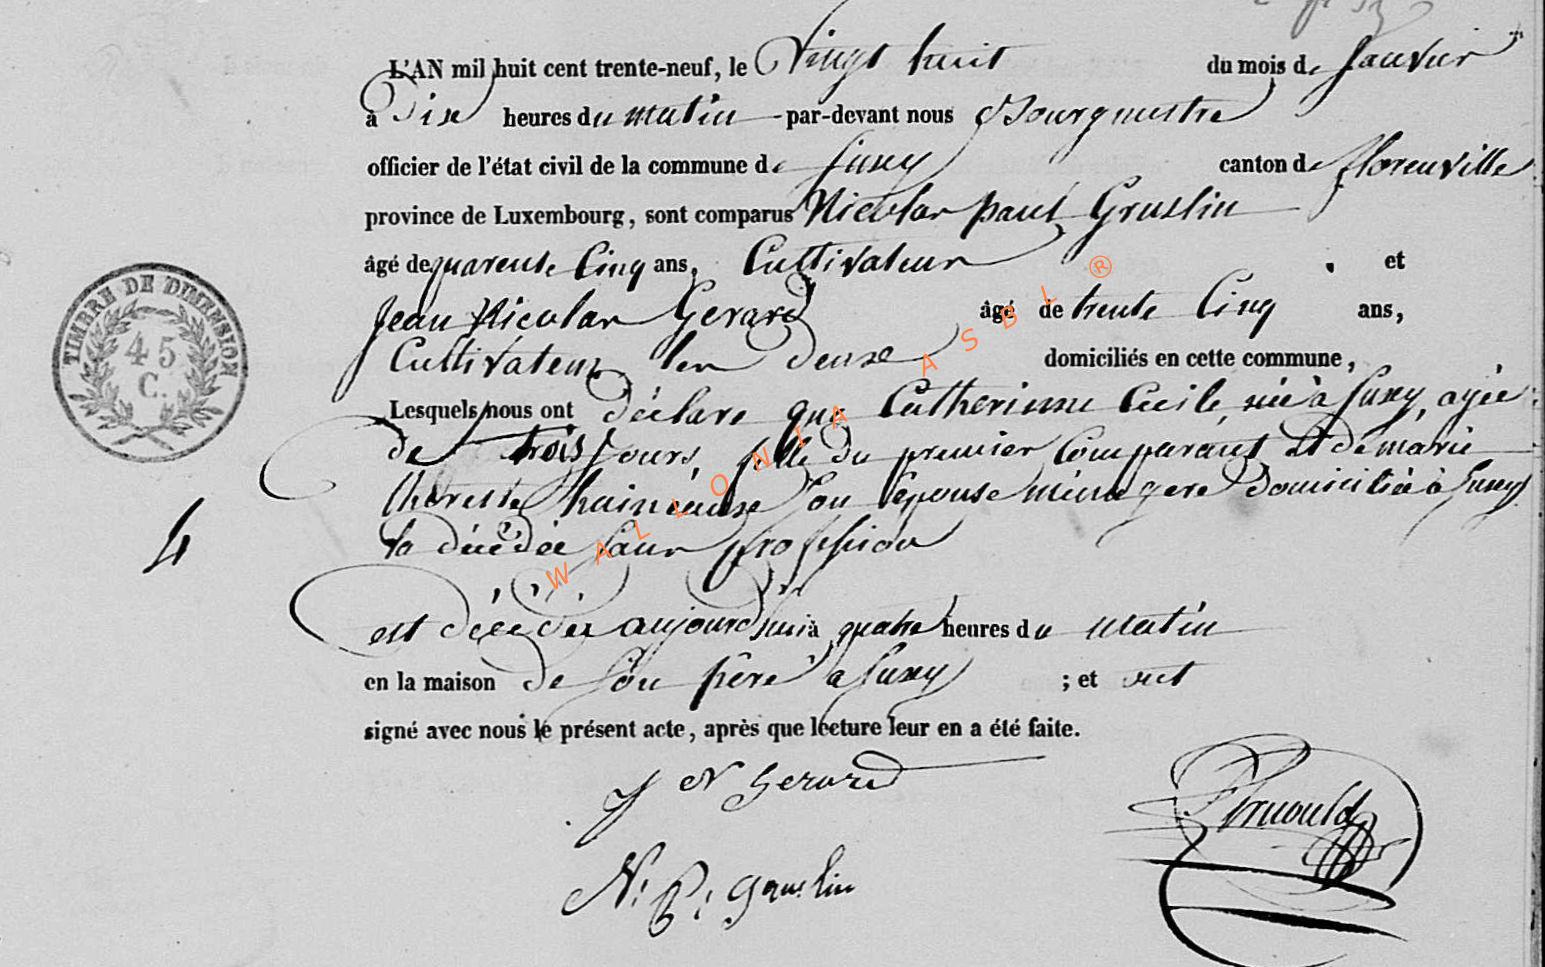 L'AN mil huit cent trente-neuf, le Vingt huit du mois de Janvier
à Dix heures du matin par-devant nous Bourgmestre
officier de l'état civil de la commune de Suxy canton de florenville
province de Luxembourg, sont comparus Nicolas paul Gruslin
âgé de quarente Cinq ans, Cultivateur et
Jean Nicolas Gerard âgé de trente Cinq ans,
Cultivateur les deux domiciliés en cette commune,
Lesquels nous ont déclare que Catherinne Cecile, née à Suxy, agée
de trois jours, fille du premier Comparant et de marie
therese son épouse ménagere domiciliée à Suxy
la décédée sans profession
est décédée aujourd'hui à quatre heures du matin
en la maison de son père a Suxy ; et ont
signé avec nous le présent acte, après que lecture leur en a été faite.
J N Gerard
N. P. Gruslin
TIMBRE DE DIMENSION
45
C.
4
WALLONIA ASBL ®